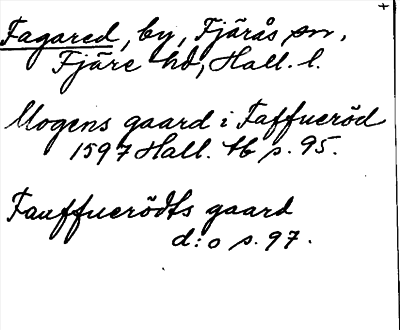 Fagared, by, Fjärås sn,
Fjäre hd, Hall. l.
Mogens gaard i Faffueröd
1597 Hall. tb s. 95.
Fauffuerödts gaard
d:o s. 97.